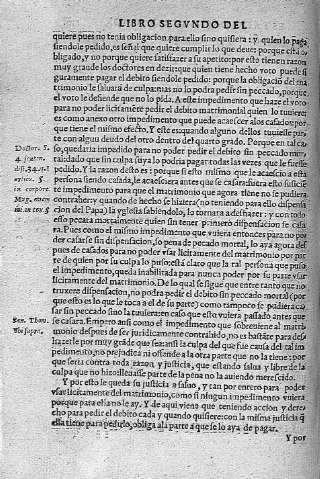 LIBRO SEGVNDO DEL
quiere pues no tenia obligacion para ello sino quisiera: y quien lo paga
siendole pedido, es señal que quiere cumplir lo que deue: porque esta o-
bligado, y no porque quiere satisfazer a su apetito: por esto tienen razon
muy grande los doctores en dezir: que quien tiene hecho voto puede si
guramente pagar el debito siendole pedido: porque la obligació del ma
trimonio le saluara de culpa: mas no lo podra pedir sin peccado, porque
el voto le defiende que no lo pida. A este impedimento que haze el voto
para no poder licitamente pedir el debito matrimonial quien lo tuuiere
es como anexo otro impedimento que puede acaescer a los casados por
que tiene el mismo efecto. Y este es quando alguno dellos tuuiesse parte
te con algun deudo del otro dentro del quarto grado. Porque en tal ca-
so, quedaria impedido para no poder pedir el debito sin peccado mor
tal: dado que sin culpa suya lo podria pagar todas las vezes que le fuesse
pedido. Y la razon desto es: porque si esto mismo que le acaescio a esta
persona siendo casada, le acaesciera antes que se casara fuera esto suficié
te impedimento para que el matrimonio que agora tiene no se pudiera
contraher: y quando de hecho se hiziera (no teniendo para ello dispensa
cion del Papa) la yglesia sabiendolo, lo tornara a deshazer: y con todo
esso peccara mortalmente quien sin tener primero dispensacion se casa
ra. Pues como el mismo impedimento que vuiera entonces para no po
der casarse sin dispensacion, so pena de pecado mortal, lo aya agora des
pues de casados para no poder vsar licitamente del matrimonio por par
te de quien por su culpa lo puso: está claro que la tal persona que puso
el impedimento, queda inabilitada para nunca poder por su parte vsar
licitamente del matrimonio. De lo qual se sigue que entre tanto que no
truxere dispensacion, no podra pedir el debito sin peccado mortal (por
que esto es lo que le toca a el de su parte) como tampoco se pudiera ca-
sar sin peccado sino la tuuiera: en caso que esto vuiera passado antes que
se casara. Empero assi como el impedimento que sobreuiene al matri
monio despues de ser juridicamente contraido, no es bastáte para desa
hazerle por muy gráde que sea: assi la culpa del que fue causa del tal im
pedimento, no prejudica ni offende a la otra parte que no la tiene: por
que seria contra toda razon y justicia, que estando salua y libre de la
culpa que no hizo lleuasse parte de la pena no la auiendo merescido.
Y por esto le queda su justicia a saluo, y tan por entero para poder
vsar licitamente del matrimonio, como si ningun impedimento vuiera
porque para ella no le ay. Y de aqui viene que teniendo accion y dere-
cho para pedir el debito cada y quando quisiere: con la misma justicia q̃
ella tiene para pedirlo, obliga a la parte a que se lo aya de pagar.
Y por